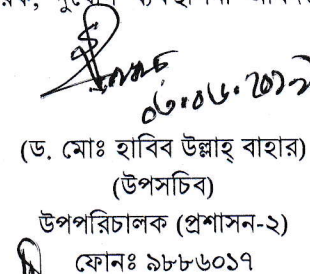 ০৬.০৬.২০১২
(ড. মোঃ হাবিব উল্লাহ্ বাহার)
(উপসচিব)
উপপরিচালক (প্রশাসন-২)
ফোনঃ ৯৮৮৬০১৭